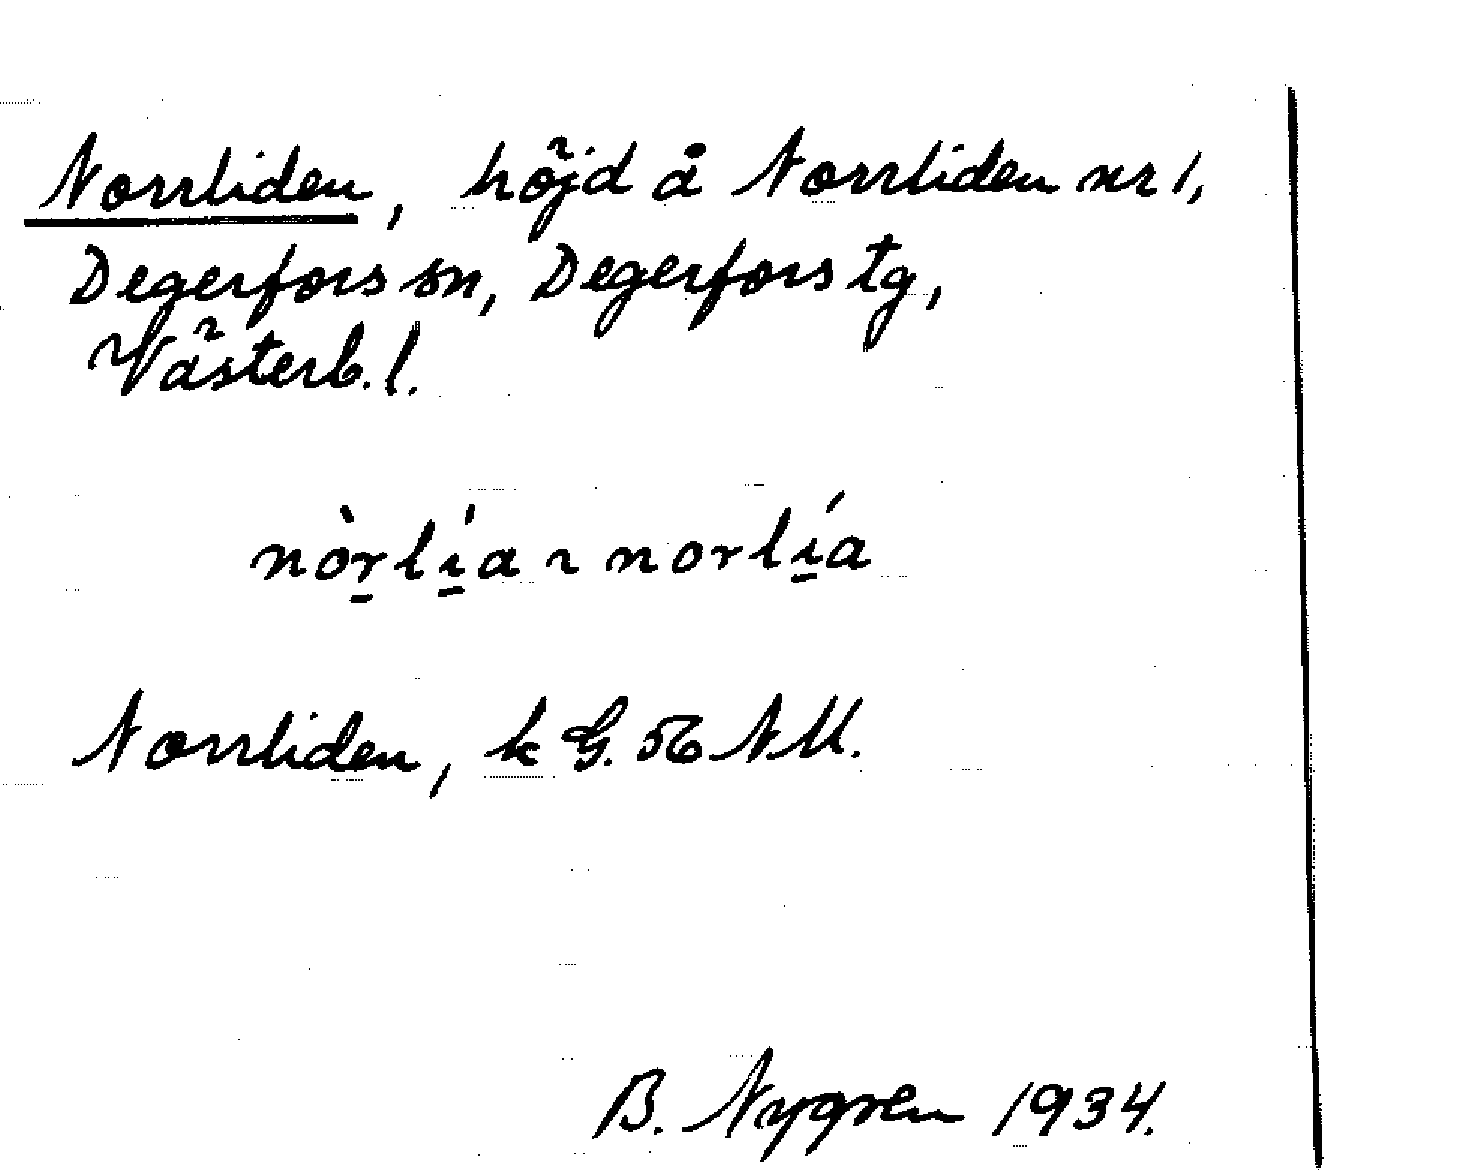 Norrliden, höjd å Norrliden nr 1,
Degerfors sn, Degerfors tg,
Västerb. l.
nòr̲lí̲a ~ norlí̲a
Norrliden, k G. 56 NU.
B. Nygren 1934.